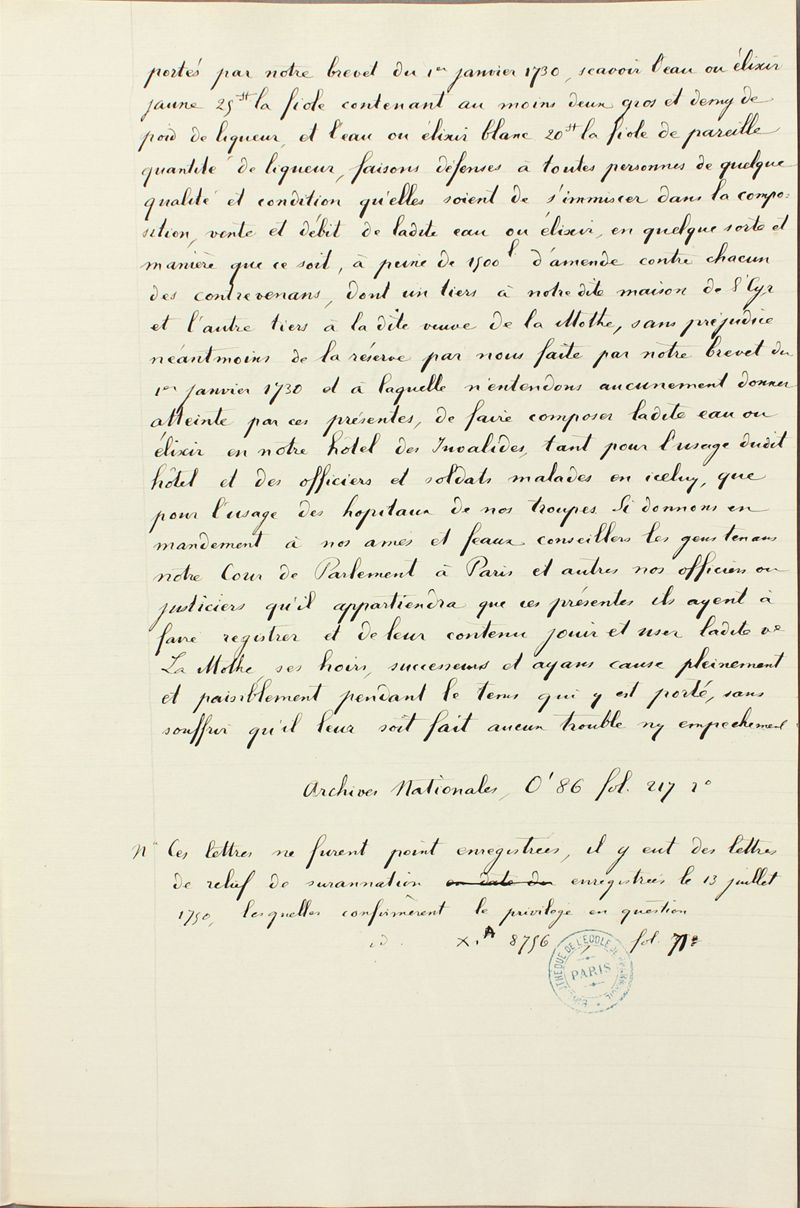 portés par notre brevet du 1er janvier 1730, scavoir l'eau ou élixir
jaune 25tt la fiole contenant au moins deux gros et demy de
poid de liqueur, et l'eau ou élixir blanc 20tt la fiole de pareille
quantité de liqueur, faisons défenses à toutes personnes de quelque
qualité et condition qu'elles soient de s'immiscer dans la compo-
sition, vente et débit de ladite eau ou élixir, en quelque sorte et
manière que ce soit, à peine de 1500l d'amende contre chacun
des contrevenans, dont un tiers à notre dite maison de St Cyr
et l'autre tiers à la dite veuve de la Mothe, sans préjudice
néantmoins de la réserve par nous faite par notre brevet du
1er janvier 1730 et à laquelle n'entendons aucunement donner
atteinte par ces présentes, de faire composer ladite eau ou
élixir en notre hôtel des Invalides, tant pour l'usage dudit
hôtel et des officiers et soldats malades en iceluy, que
pour l'usage des hopitaux de nos troupes. Si donnons en
mandement à nos amés et feaux conseillers les gens tenans
notre Cour de Parlement à Paris et autres nos officiers ou
justiciers qu'il appartiendra que ces présentes ils ayent à
faire registrer et de leur contenu jouir et user ladite ve
La Mothe, ses hoirs, successeurs et ayans cause pleinement
et paisiblement pendant le tems qui y est porté, sans
souffrir qu'il leur soit fait aucun trouble ny empechement
Archives Nationales, O1 86 fol. 217 ro
Na Ces lettres ne furent point enregistrées, il y eut des lettres
de relief de surannation en date du enregistrées le 13 juillet
1750, lesquelles confirmèrent le privilège en question
id. X1A 8756 fol.
BIBLIOTHÈQUE DE L'ÉCOLE DE PHARMACIE
PARIS